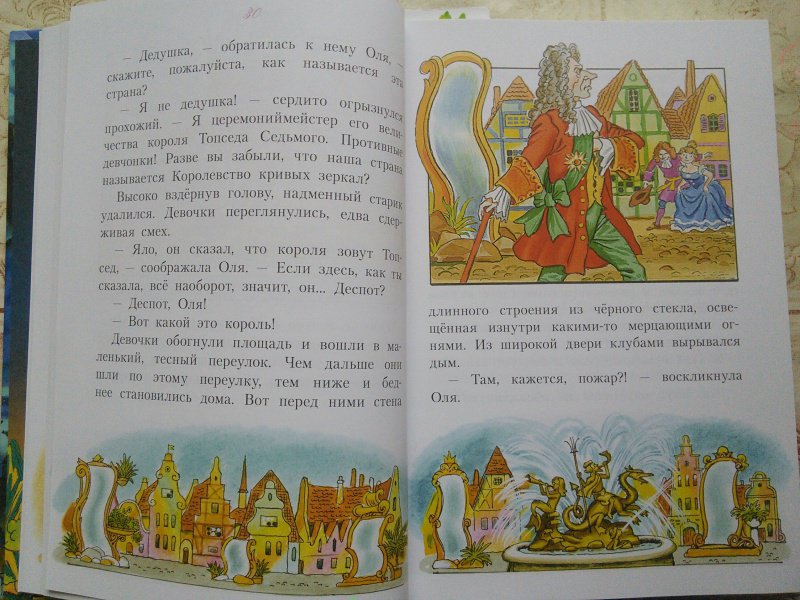 30
— Дедушка, — обратилась к нему Оля, —
скажите, пожалуйста, как называется эта
страна?
— Я не дедушка! — сердито огрызнулся
прохожий. — Я церемониймейстер его вели-
чества короля Топседа Седьмого. Противные
девчонки! Разве вы забыли, что наша страна
называется Королевство кривых зеркал?
Высоко вздёрнув голову, надменный старик
удалился. Девочки переглянулись, едва сдер-
живая смех.
— Яло, он сказал, что короля зовут Топ-
сед, — соображала Оля. — Если здесь, как ты
сказала, всё наоборот, значит, он... Деспот?
— Деспот, Оля!
— Вот какой это король!
Девочки обогнули площадь и вошли в ма-
ленький, тесный переулок. Чем дальше они
шли по этому переулку, тем ниже и бед-
нее становились дома. Вот перед ними стена
длинного строения из чёрного стекла, осве-
щённая изнутри какими-то мерцающими ог-
нями. Из широкой двери клубами вырывался
дым.
— Там, кажется, пожар?! — воскликнула
Оля.